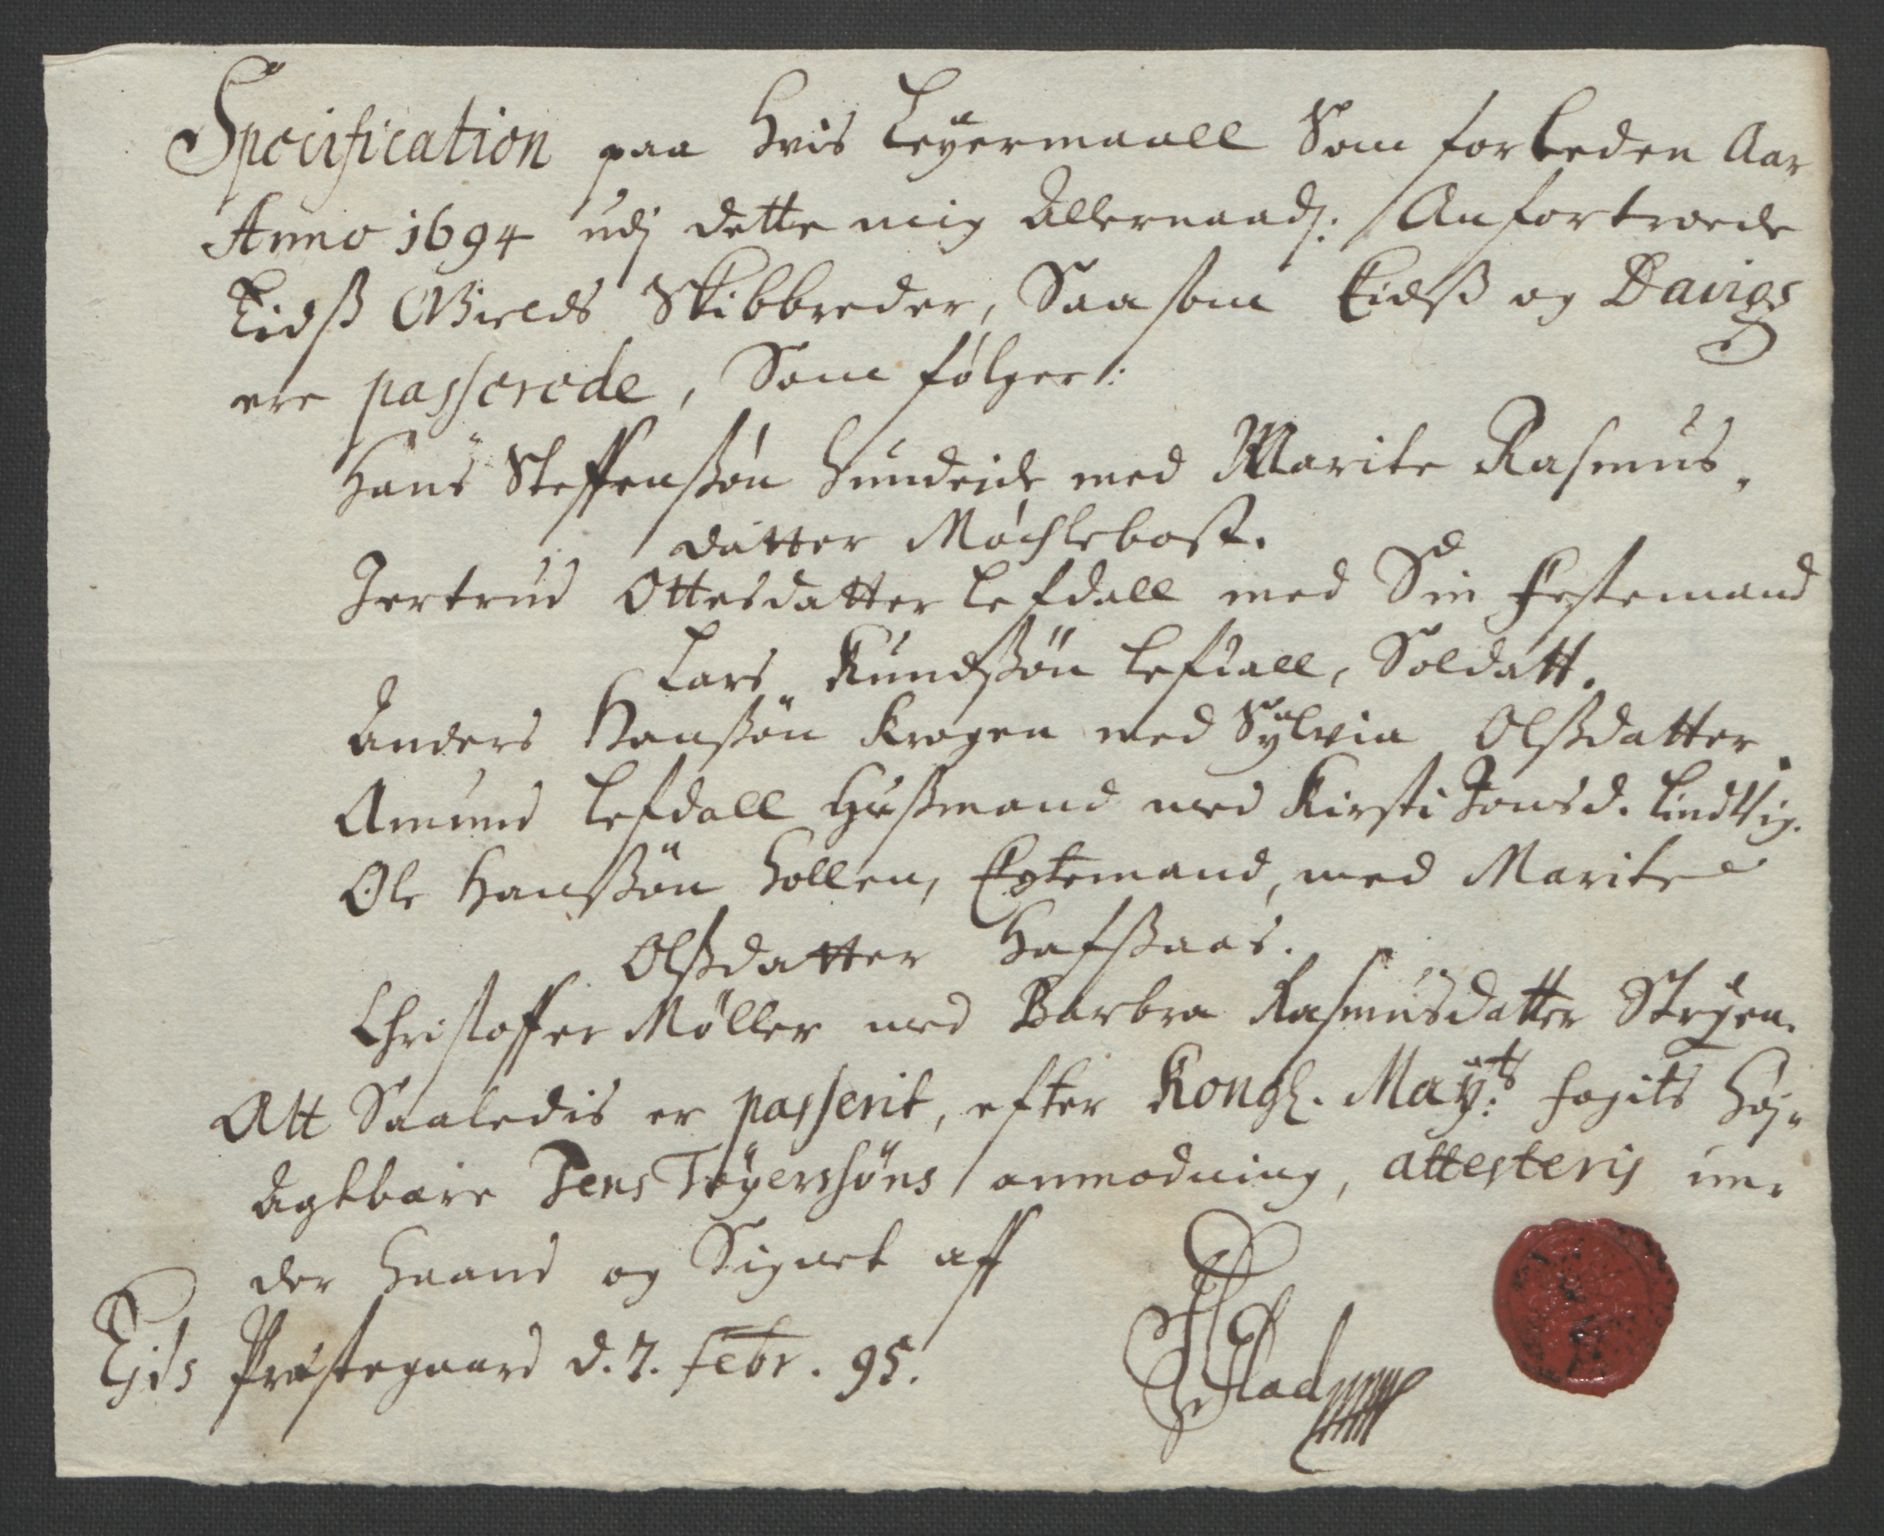 Specification paa hvis Leyermaall Som forleden Aar
Anno 1694 udj dette mig Allernaads: Anfortroede
Eidsß Gields Skibbreder, Saasom Eidsß og Davigs
ere passerede, Som følger:
Hans Steffensßøn Hundeide med Marite Rasmus-
datter Møchlebost.
Jertrud Ottesdatter Lefdall med Sin Festemand
Lars Knudsßøn Lefdall, Soldatt.
Anders Hansßøn Krogen med Sylvia Olsßdatter
Amund Lefdall Husmand med Kirsti Jonsd. Lindvig.
Ole Hansßøn Hollen, Egtemand, med Marite
Olsßdatter Hafsaas.
Christoffer Møller med Barbra Rasmusdatter Stryen.
Att Saaledis er passerit, efter Kongl. Mayts: fogits Høj-
Agtbare Jens Tøyersøns anmodning, attesteris un-
der Haand og Signet af
Eids Præstegaard d. 7. febr. 95.